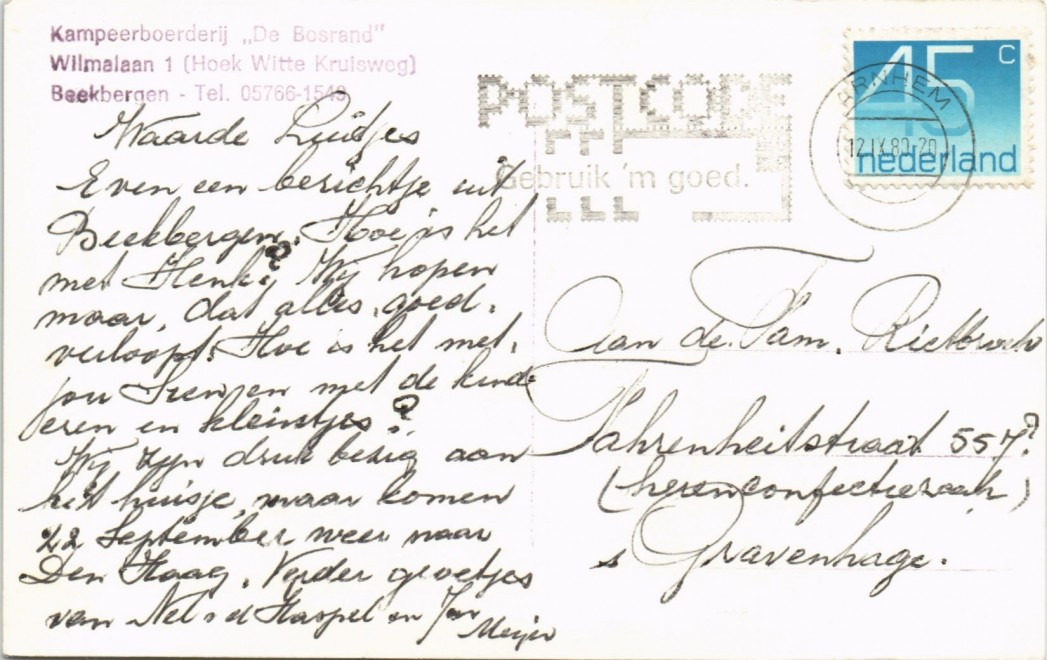 Kampeerboerderij „De Bosrand”
Wilmalaan 1 (Hoek Witte Kruisweg)
Beekbergen - Tel. 05766-1548
Waarde Luitjes
Even een berichtje uit
Beekbergen. Hoe is het
met Henk? Wij hopen
maar, dat alles, goed.
verloopt. Hoe is het met.
jou en met de kind-
eren en kleintjes?
Wij zijn druk bezig aan
het huisje, maar komen
22 September weer naar
Den Haag. Verder groetjes
van Nel v d Haspel en Jan
Meijer
POSTCODE
Gebruik 'm goed.
45 C
nederland
ARNHEM
12 IX 80.20
Aan de Fam. Rietbroek
Fahrenheitstraat 557?
(herenconfectiezaak)
s Gravenhage.